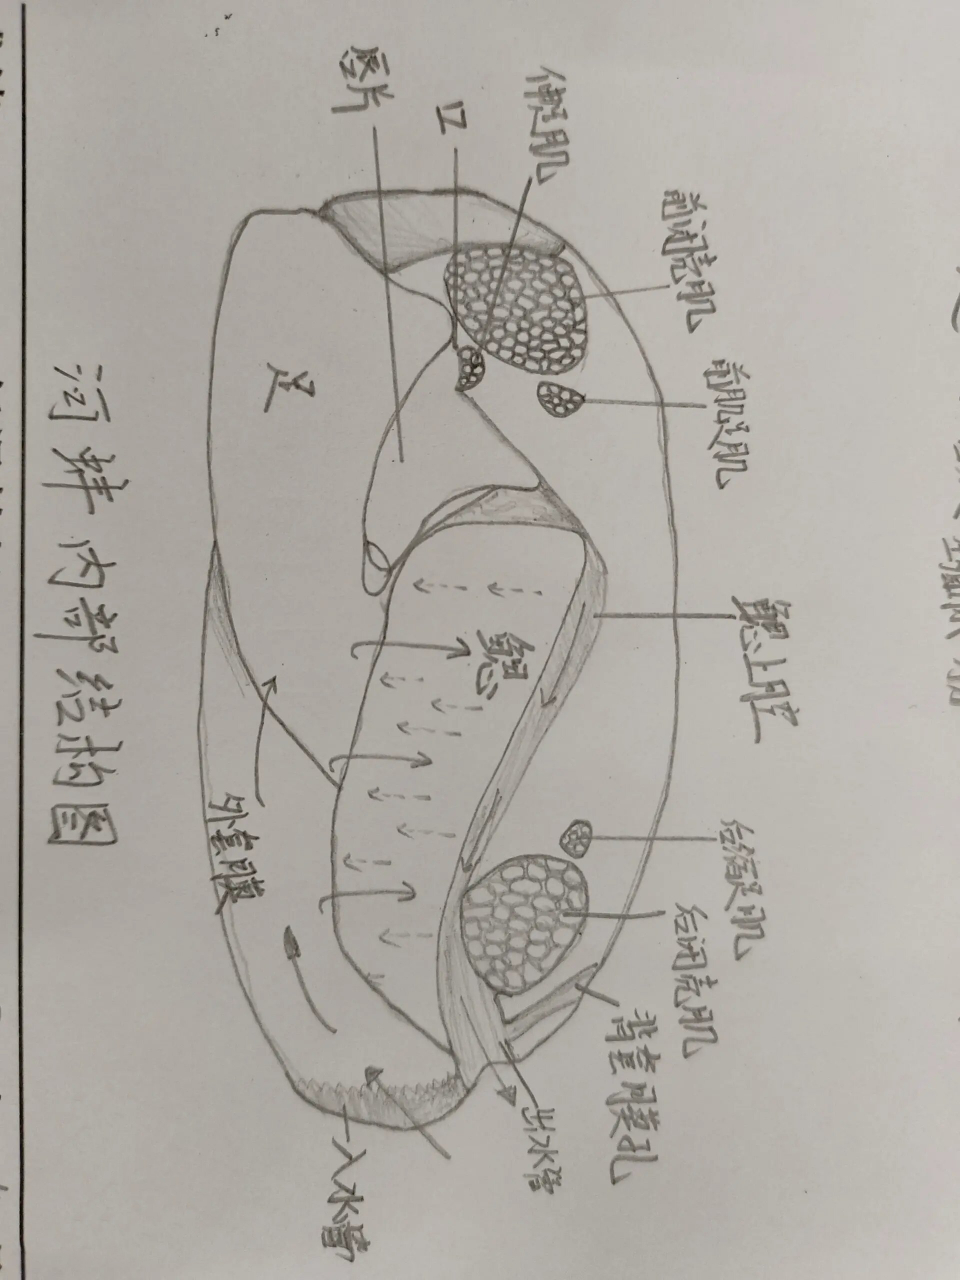 唇片
口
伸足肌
前闭壳肌
前缩足肌
鳃上腔
后缩足肌
后闭壳肌
背套膜孔
出水管
入水管
足
鳃
外套膜
河蚌内部结构图